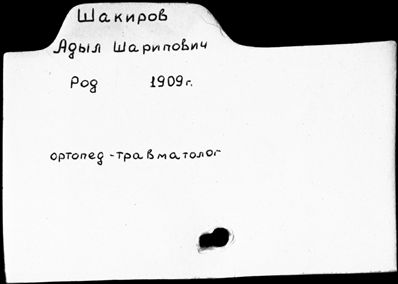 Шакиров
Адыл Шарипович
Род 1909г.
ортопед-травматолог